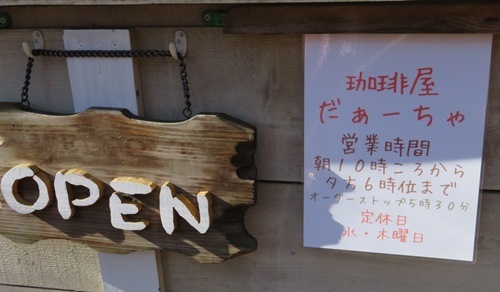 OPEN
珈琲屋
だぁーちゃ
営業時間
朝10時ころから
夕方6時位まで
オーダーストップ5時30分
定休日
水・木曜日